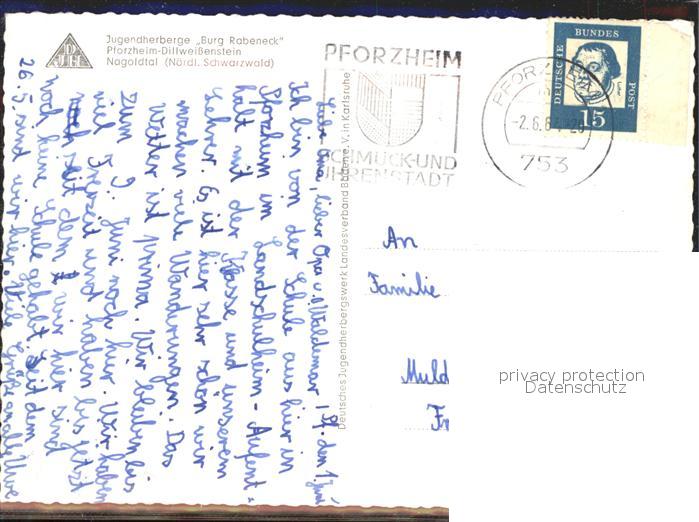 Jugendherberge „Burg Rabeneck"
Pforzheim-Dillweißenstein
Nagoldtal (Nördl. Schwarzwald)
DJH
PFORZHEIM
SCHMUCK-UND
UHRENSTADT
PFORZHEIM
-2.6.64
753
DEUTSCHE
BUNDES
POST
Luther
15
Liebe Oma, lieber Opa u. Waldemar, Pf. den 1. Juni
Ich bin von der Schule aus hier in
Pforzheim im Landschulheim-Aufent=
halt mit der Klasse und unserem
Lehrer. Es ist hier sehr schön wir
machen viele Wanderungen. Das
Wetter ist prima. Wir bleiben bis
zum 9. Juni noch hier. Wir haben
viel Freizeit und haben bis jetzt
seit dem wir hier sind
noch keine Schule gehabt. Seit dem
26.5 sind wir hier. Viele Grüße Uwe
Deutsches Jugendherbergswerk Landesverband Baden e. V. in Karlsruhe
An
Familie
Muld
Fr
privacy protection
Datenschutz